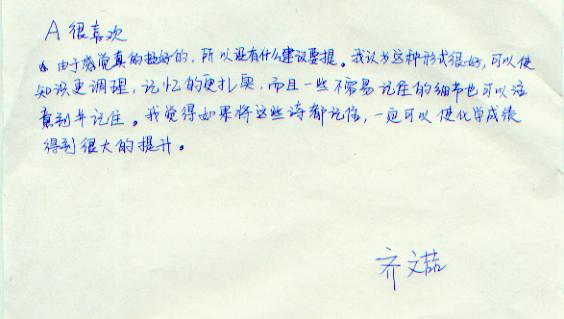 A 很喜欢
由于感觉真的挺好的，所以没有什么建议要提。我认为这种形式很好，可以使
知识更调理，记忆的更扎实，而且一些不容易记住的细节也可以注
意到并记住。我觉得如果将这些诗都记住，一定可以使化学成绩
得到很大的提升。
齐文喆